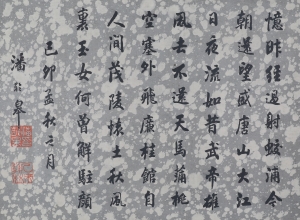 憶昨經過射蛟浦今
朝還望盛唐山大江
日夜流如昔武帝雄
風去不還天馬蒲桃
空塞外飛廉桂館自
人間茂陵懷土秋風
裏玉女何曾解駐顏
己卯孟秋之月
潘齡皋